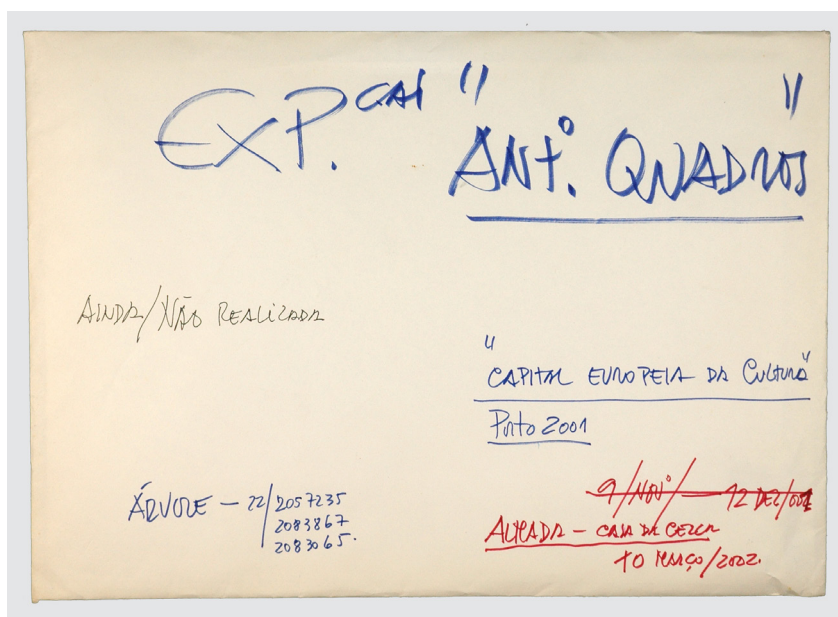 EXP. CAI "ANTº. QUADROS"
AINDA/NÃO REALIZADA
"CAPITAL EUROPEIA DA CULTURA"
Porto 2001
ÁRVORE - 22/2057235
2083867
2083065.
9/NOVº/ - 12 DEZ/001
ALMADA - CASA DA CERCA
10 MARÇO/2002.